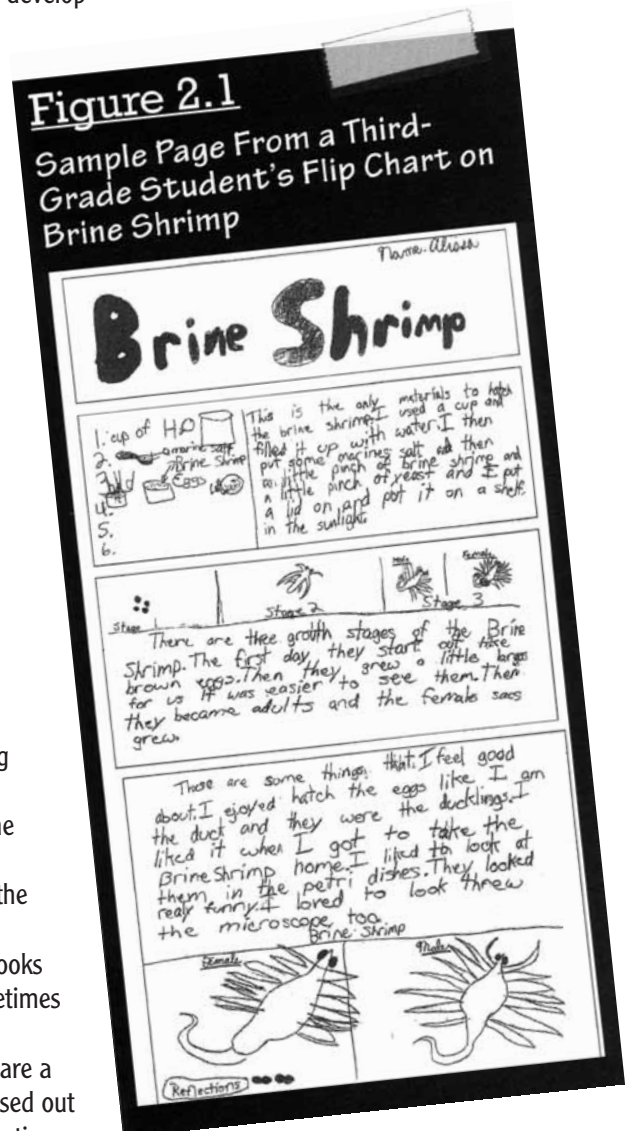 develop
Figure 2.1
Sample Page From a Third-
Grade Student's Flip Chart on
Brine Shrimp
Name-Alissa
Brine Shrimp
1. cup of H2O
2. marine salt
3. Brine Shrimp
Eggs
4.
5.
6.
This is the only materials to hatch
the brine shrimp. I used a cup and
filled it up with water. I then
put some marines salt and then
a little pinch of brine shrimp and
a little pinch of yeast and I put
a lid on and pot it on a shelf.
in the sunlight.
Stage 1
Stage 2
Male
Female
Stage 3
There are thee groth stages of the Brine
Shrimp. The first day they start out like
brown eggs. Then they grew a little
for us it was easier to see them. Then
they became adults and the female sacs
grew.
These are some things that I feel good
about. I ejoyed hatch the eggs like I am
the duck and they were the ducklings. I
liked it when I got to take the
Brine Shrimp home. I liked to look at
them in the petri dishes. They looked
realy funny. I loved to look threw
the microscope too.
Brine Shrimp
Female
Male
Reflections
g
ne
the
ooks
etimes
are a
sed out